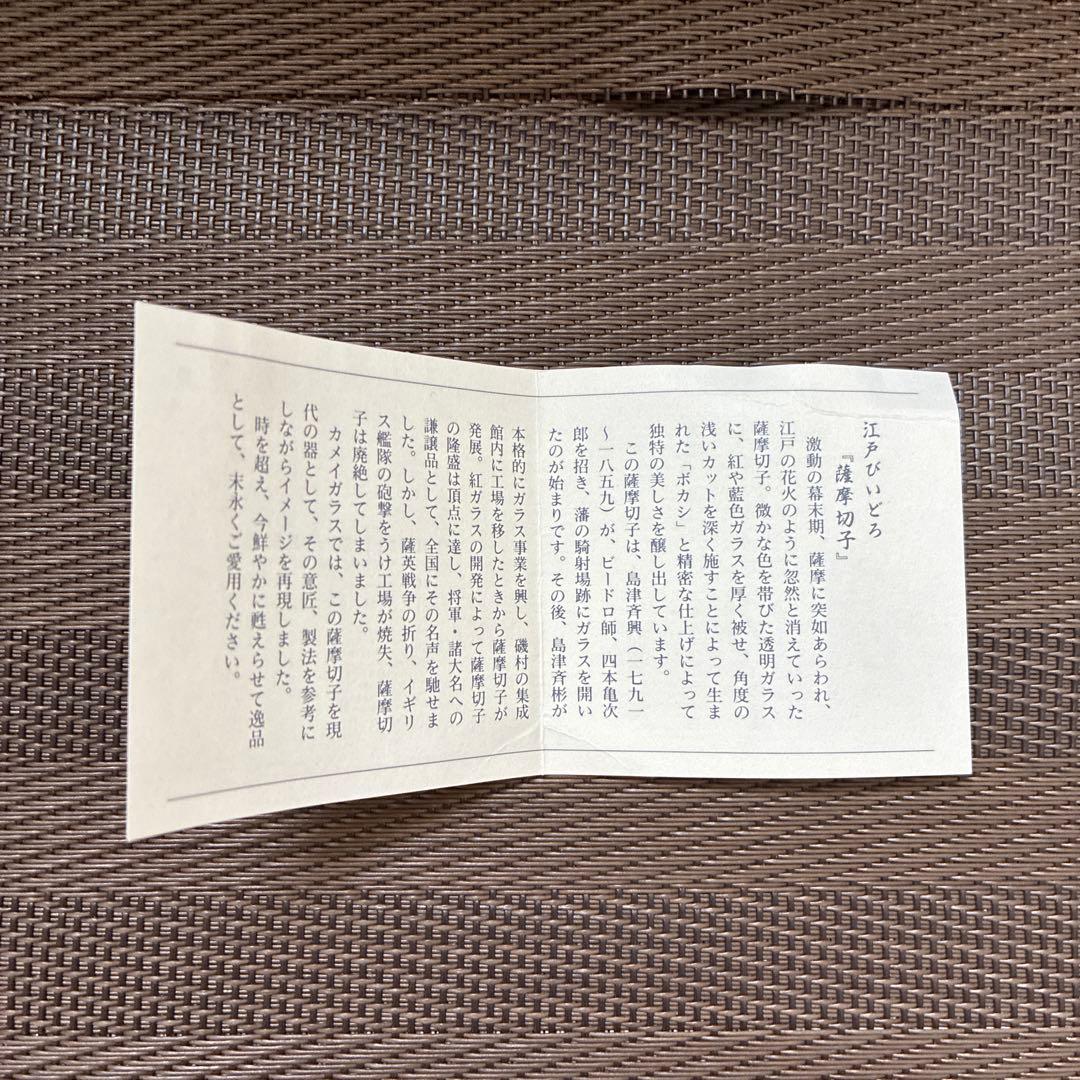 江戸びいどろ
『薩摩切子』
激動の幕末期、薩摩に突如あらわれ、
江戸の花火のように忽然と消えていった
薩摩切子。微かな色を帯びた透明ガラス
に、紅や藍色ガラスを厚く被せ、角度の
浅いカットを深く施すことによって生ま
れた「ボカシ」と精密な仕上げによって
独特の美しさを醸し出しています。
この薩摩切子は、島津斉興(一七九一
〜一八五九)が、ビードロ師、四本亀次
郎を招き、藩の騎射場跡にガラスを開い
たのが始まりです。その後、島津斉彬が
本格的にガラス事業を興し、磯村の集成
館内に工場を移したときから薩摩切子が
発展。紅ガラスの開発によって薩摩切子
の隆盛は頂点に達し、将軍・諸大名への
謙譲品として、全国にその名声を馳せま
した。しかし、薩英戦争の折り、イギリ
ス艦隊の砲撃をうけ工場が焼失、薩摩切
子は廃絶してしまいました。
カメイガラスでは、この薩摩切子を現
代の器として、その意匠、製法を参考に
しながらイメージを再現しました。
時を超え、今鮮やかに甦えらせて逸品
として、末永くご愛用ください。